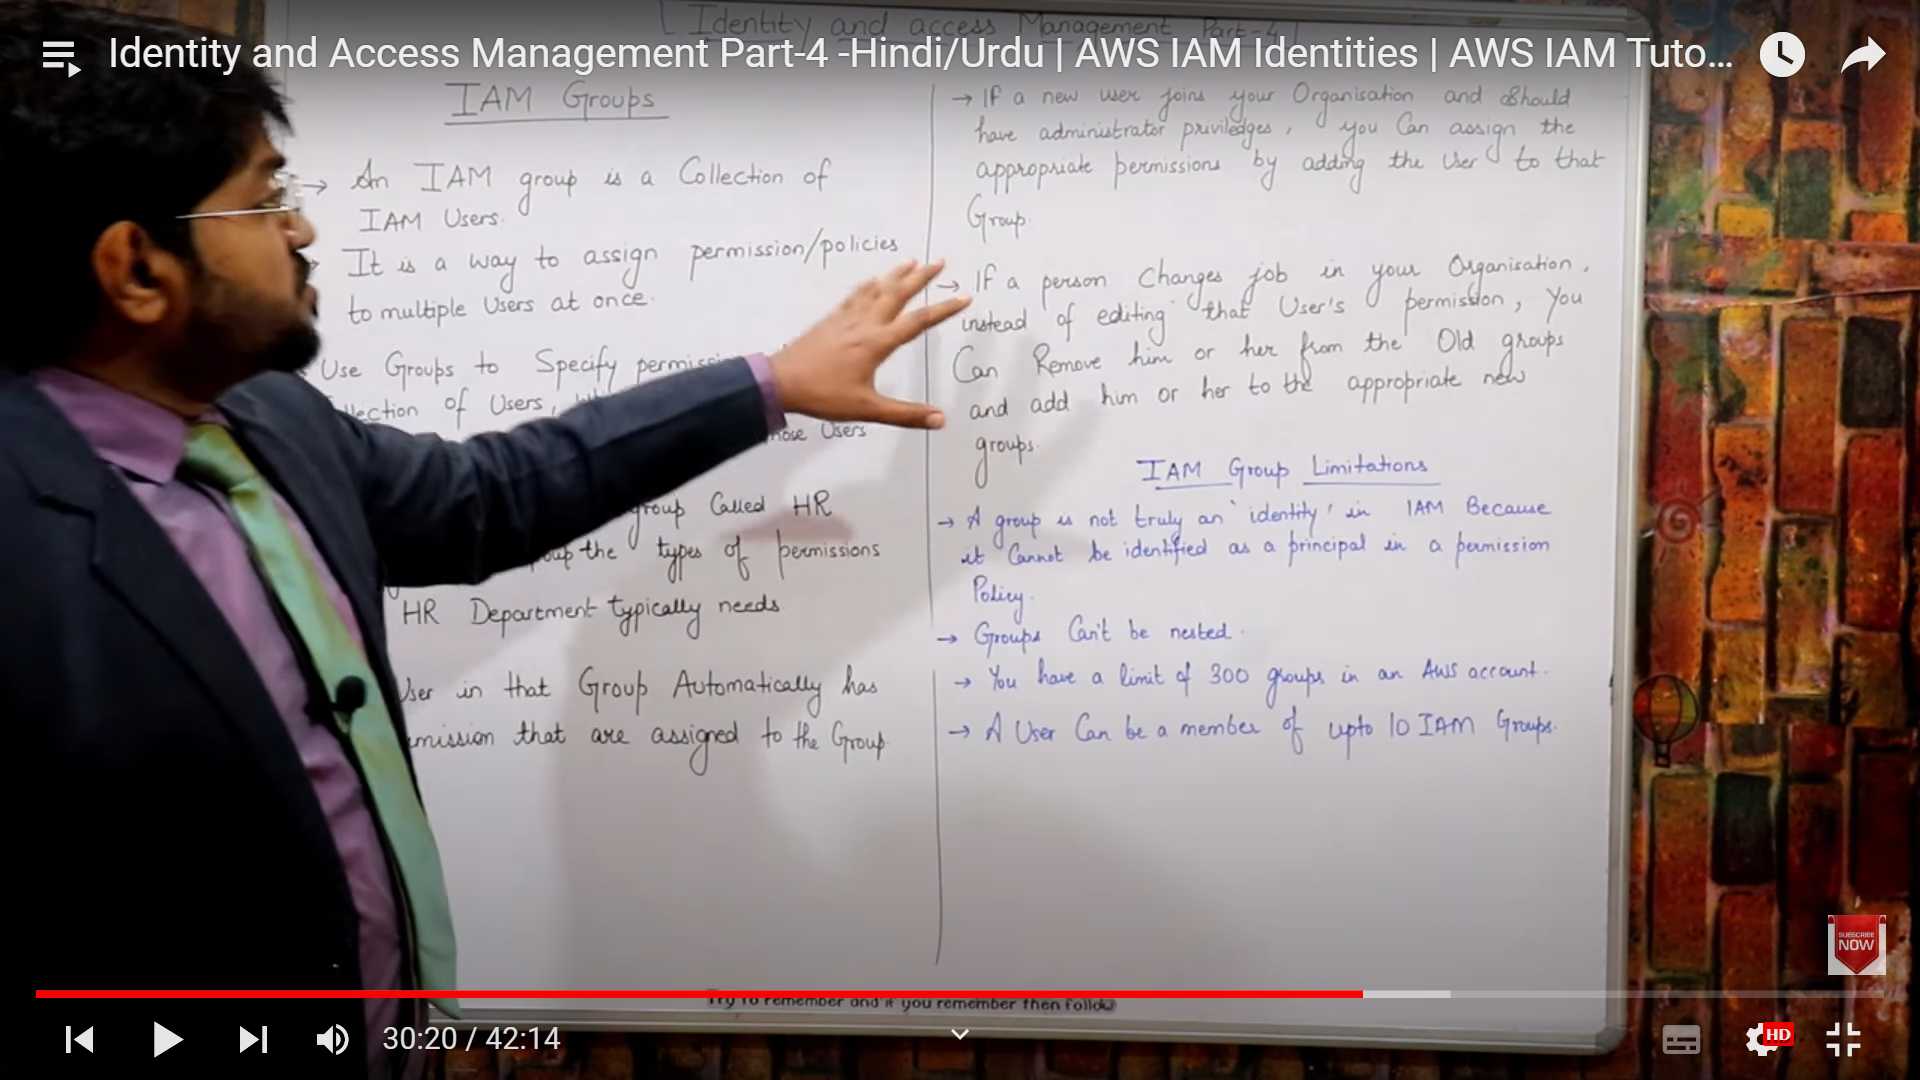 Identity and access Management Part-4
Identity and Access Management Part-4 -Hindi/Urdu | AWS IAM Identities | AWS IAM Tuto...
IAM Groups
→ An IAM group is a Collection of
IAM Users.
It is a way to assign permission/policies
to multiple Users at once.
Use Groups to Specify
of Users,
those Users
group Called HR
the types of permissions
HR Department typically needs.
User in that Group Automatically has
that are assigned to the Group
→ If a new user joins your Organisation and Should
have administrator priviledges, you Can assign the
appropriate permissions by adding the User to that
Group.
→ If a person Changes job in your Organisation,
instead of editing that User's permission, You
Can Remove him or her from the Old groups
and add him or her to the appropriate new
groups.
IAM Group Limitations
→ A group is not truly an 'identity' in IAM Because
it Cannot be identified as a principal in a permission
Policy.
→ Groups Can't be nested.
→ You have a limit of 300 groups in an AWS account.
→ A User Can be a member of upto 10 IAM Groups.
SUBSCRIBE
NOW
Try to remember and if you remember then follow
30:20 / 42:14
HD